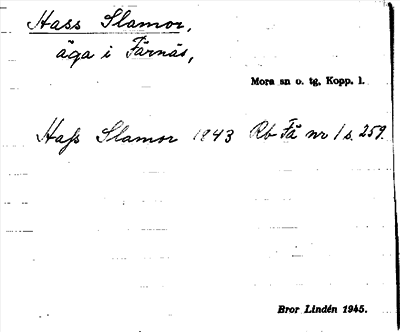 Hass Slamor,
äga i Färnäs,
Mora sn o. tg, Kopp. l.
Hass Slamor 1843 Rb Fä nr 1 s. 259.
Bror Lindén 1945.